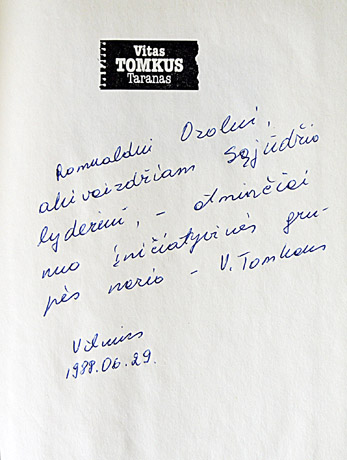 Vitas
TOMKUS
Taranas
Romualdui Ozolui,
akivaizdžiam Sąjūdžio
lyderiui, – atminčiai
nuo iničiatyvinės gru-
pės nario – V. Tomkaus
Vilnius
1988.06.29.